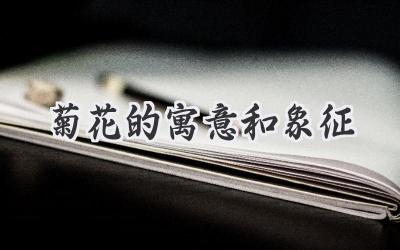 菊花的寓意和象征